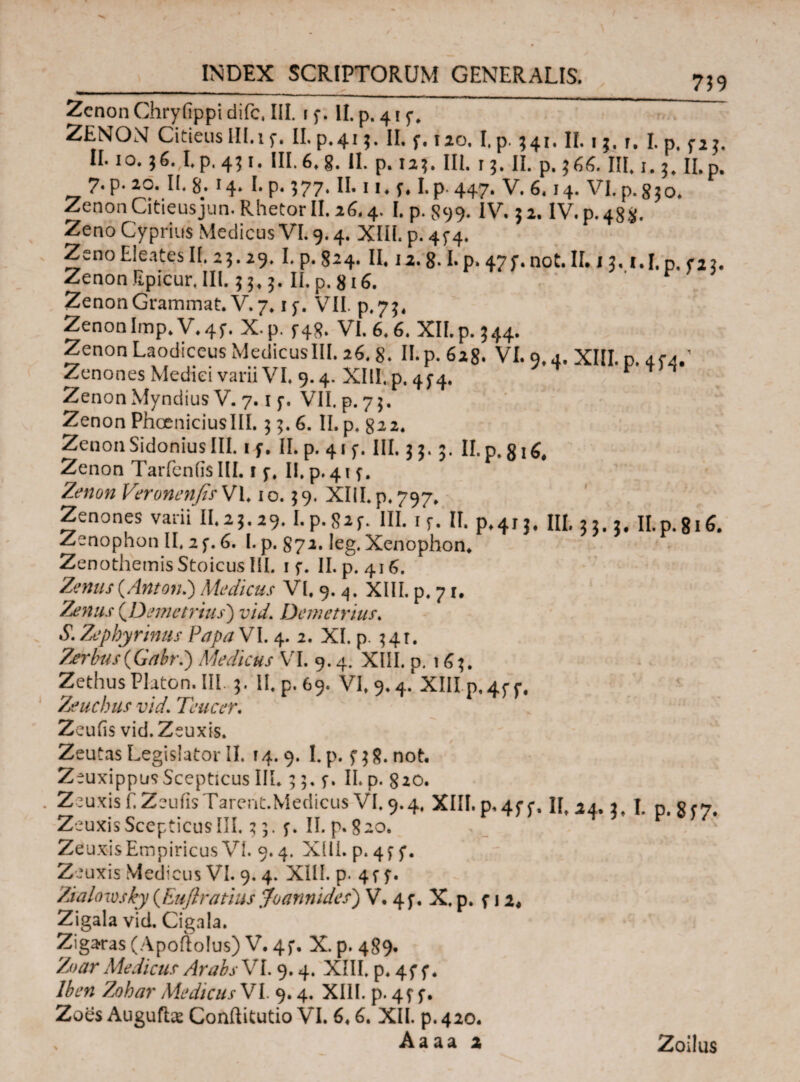 INDEX SCRIPTORUM GENERALIS.
739
Zenon Chryſippi diſc. III. 15. II. p. 415.
ZENON Citieus III. 15. II. p. 413. II. 5. 120. I. p. 341. II. 13. 1. I. p. 523.
II. 10. 36. I. p. 431. III. 6. 8. II. p. 123. III. 13. II. p. 366. III. 1. 3. II. p.
7. p. 20. II. 8. 14. I. p. 377. II. 11. 5. I. p. 447. V. 6. 14. VI. p. 830.
Zenon Citieus jun. Rhetor II. 26. 4. I. p. 899. IV. 32. IV. p. 488.
Zeno Cyprius Medicus VI. 9. 4. XIII. p. 454.
Zeno Eleates II. 23. 29. I. p. 824. II. 12. 8. I. p. 475. not. II. 13. 1. I. p. 523.
Zenon Epicur. III. 33. 3. II. p. 816.
Zenon Grammat. V. 7. 15. VII. p. 73.
Zenon Imp. V. 45. X. p. 548. VI. 6. 6. XII. p. 344.
Zenon Laodiceus Medicus III. 26. 8. II. p. 628. VI. 9. 4. XIII. p. 454.
Zenones Medici varii VI. 9. 4. XIII. p. 454.
Zenon Myndius V. 7. 15. VII. p. 73.
Zenon Phœnicius III. 33. 6. II. p. 822.
Zenon Sidonius III. 15. II. p. 415. III. 33. 3. II. p. 816.
Zenon Tarſenſis III. 15. II. p. 415.
Zenon Veronenſis VI. 10. 39. XIII. p. 797.
Zenones varii II. 23. 29. I. p. 825. III. 15. II. p. 413. III. 33. 3. II. p. 816.
Zenophon II. 25. 6. I. p. 872. leg. Xenophon.
Zenothemis Stoicus III. 15. II. p. 416.
Zenus (Anton.) Medicus VI. 9. 4. XIII. p. 71.
Zenus (Demetrius) vid. Demetrius.
S. Zephyrinus Papa VI. 4. 2. XI. p. 341.
Zerbus (Gabr.) Medicus VI. 9. 4. XIII. p. 163.
Zethus Platon. III. 3. II. p. 69. VI. 9. 4. XIII p. 455.
Zeuchus vid. Teucer.
Zeuſis vid. Zeuxis.
Zeutas Legislator II. 14. 9. I. p. 538. not.
Zeuxippus Scepticus III. 33. 5. II. p. 820.
Zeuxis ſ. Zeuſis Tarent. Medicus VI. 9. 4. XIII. p. 455. II. 24. 3. I. p. 857.
Zeuxis Scepticus III. 33. 5. II. p. 820.
Zeuxis Empiricus VI. 9. 4. XIII. p. 455.
Zeuxis Medicus VI. 9. 4. XIII. p. 455.
Zialowsky (Euſtratius Joannides) V. 45. X. p. 512.
Zigala vid. Cigala.
Zigaras (Apoſtolus) V. 45. X. p. 489.
Zoar Medicus Arabs VI. 9. 4. XIII. p. 455.
Iben Zohar Medicus VI. 9. 4. XIII. p. 455.
Zoës Auguſtæ Conſtitutio VI. 6. 6. XII. p. 420.
Aaaa 2
Zoilus